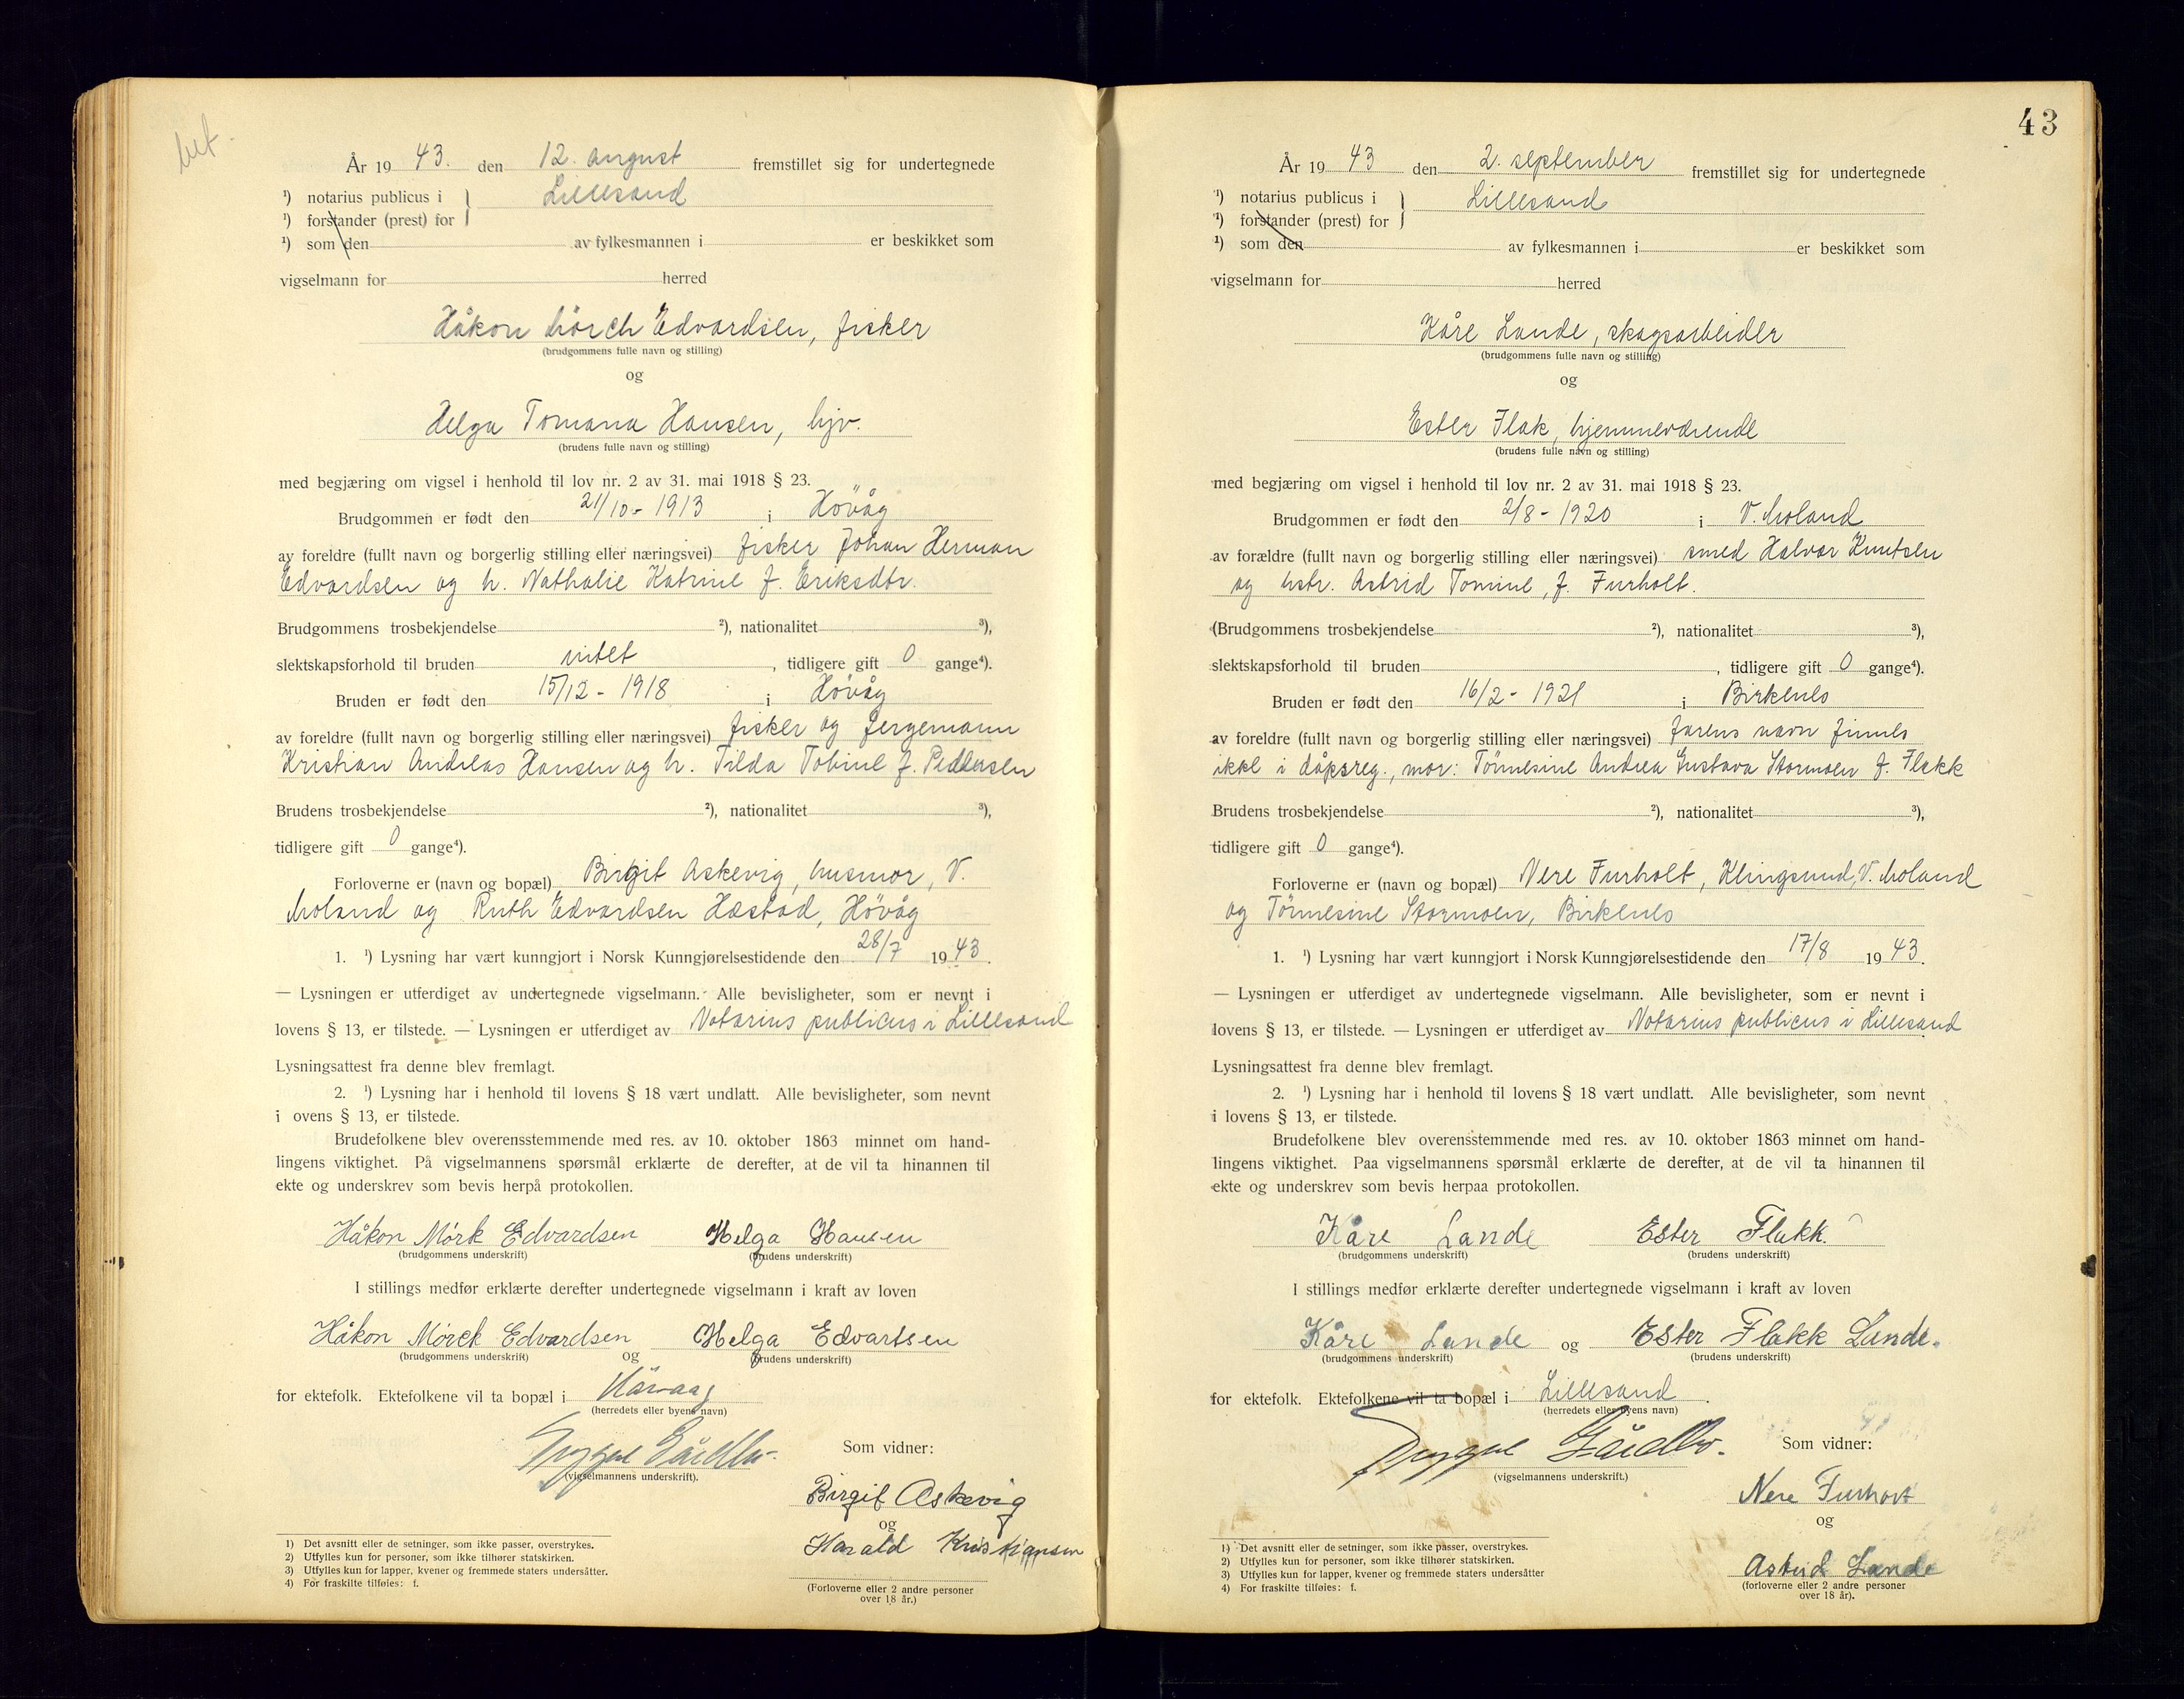 bet.
År 19 43. den 12. august fremstillet sig for undertegnede
¹) notarius publicus i } Lillesand
¹) forstander (prest) for
¹) som den av fylkesmannen i er beskikket som
vigselmann for herred
Håkon Mörch Edvardsen, fisker
(brudgommens fulle navn og stilling)
og
Helga Tomana Hansen, hjv.
(brudens fulle navn og stilling)
med begjæring om vigsel i henhold til lov nr. 2 av 31. mai 1918 § 23.
Brudgommen er født den 21/10 - 1913 i Hövåg
av foreldre (fullt navn og borgerlig stilling eller næringsvei) fisker Johan Herman
Edvardsen og h. Nathalie Katrine f. Eriksdtr.
Brudgommens trosbekjendelse ²), nationalitet ³),
slektskapsforhold til bruden intet, tidligere gift 0 gange⁴).
Bruden er født den 15/12 - 1918 i Hövåg
av foreldre (fullt navn og borgerlig stilling eller næringsvei) fisker og fergemann
Kristian Andreas Hansen og h. Tilda Tobine f. Pedersen
Brudens trosbekjendelse ²), nationalitet ³),
tidligere gift 0 gange⁴).
Forloverne er (navn og bopæl) Birgit Askevig, husmor, V.
Moland og Ruth Edvardsen Hæstad, Hövåg
1. ¹) Lysning har vært kunngjort i Norsk Kunngjørelsestidende den 28/7 19 43.
— Lysningen er utferdiget av undertegnede vigselmann. Alle bevisligheter, som er nevnt i
lovens § 13, er tilstede. — Lysningen er utferdiget av Notarius publicus i Lillesand
Lysningsattest fra denne blev fremlagt.
2. ¹) Lysning har i henhold til lovens § 18 vært undlatt. Alle bevisligheter, som nevnt
i ovens § 13, er tilstede.
Brudefolkene blev overensstemmende med res. av 10. oktober 1863 minnet om hand-
lingens viktighet. På vigselmannens spørsmål erklærte de derefter, at de vil ta hinannen til
ekte og underskrev som bevis herpå protokollen.
Håkon Mørk Edvardsen Helga Hansen
(brudgommens underskrift) (brudens underskrift)
I stillings medfør erklærte derefter undertegnede vigselmann i kraft av loven
Håkon Mörck Edvardsen Helga Edvartsen
(brudgommens underskrift) og (brudens underskrift)
for ektefolk. Ektefolkene vil ta bopæl i Hövaag
(herredets eller byens navn)
(vigselmannens underskrift).
Som vidner:
Birgit Askevig
og
Harald Kristiansen
(Forloverne eller 2 andre personer
over 18 år.)
1) Det avsnitt eller de setninger, som ikke passer, overstrykes.
2) Utfylles kun for personer, som ikke tilhører statskirken.
3) Utfylles kun for lapper, kvener og fremmede staters undersåtter.
4) For fraskilte tilføies: f.
43
År 19 43 den 2. september fremstillet sig for undertegnede
¹) notarius publicus i } Lillesand
¹) forstander (prest) for
¹) som den av fylkesmannen i er beskikket som
vigselmann for herred
Kåre Lande, skogsarbeider
(brudgommens fulle navn og stilling)
og
Ester Flak, hjemmeværende
(brudens fulle navn og stilling)
med begjæring om vigsel i henhold til lov nr. 2 av 31. mai 1918 § 23.
Brudgommen er født den 2/8 - 1920 i V. Moland
av forældre (fullt navn og borgerlig stilling eller næringsvei) smed Halvor Knutsen
og hstr. Astrid Tomine, f. Furholt.
(Brudgommens trosbekjendelse ²), nationalitet ³),
slektskapsforhold til bruden, tidligere gift 0 gange⁴).
Bruden er født den 16/2 - 1921 i Birkenes
av foreldre (fullt navn og borgerlig stilling eller næringsvei) farens navn finnes
ikke i dåpsreg., mor: Tönnesine Andrea Gustava Stormoen f. Flakk
Brudens trosbekjendelse ²), nationalitet ³),
tidligere gift 0 gange⁴).
Forloverne er (navn og bopæl) Nere Furholt, Klingsund, V. Moland
og Tönnesine Stormoen, Birkenes
1. ¹) Lysning har vært kunngjort i Norsk Kunngjørelsestidende den 17/8 19 43.
— Lysningen er utferdiget av undertegnede vigselmann. Alle bevisligheter, som er nevnt i
lovens § 13, er tilstede. — Lysningen er utferdiget av Notarius publicus i Lillesand
Lysningsattest fra denne blev fremlagt.
2. ¹) Lysning har i henhold til lovens § 18 vært undlatt. Alle bevisligheter, som nevnt
i lovens § 13, er tilstede.
Brudefolkene blev overensstemmende med res. av 10. oktober 1863 minnet om hand-
lingens viktighet. Paa vigselmannens spørsmål erklærte de derefter, at de vil ta hinannen til
ekte og underskrev som bevis herpaa protokollen.
Kåre Lande Ester Flakk.
(brudgommens underskrift) (brudens underskrift)
I stillings medfør erklærte derefter undertegnede vigselmann i kraft av loven
Kåre Lande og Ester Flakk Lande.
(brudgommens underskrift) (brudens underskrift)
for ektefolk. Ektefolkene vil ta bopæl i Lillesand.
(herredets eller byens navn)
(vigselmannens underskrift.)
Som vidner:
Nere Furholt
og
Astrid Lande
(forloverne eller 2 andre personer
over 18 år).
1) Det avsnitt eller de setninger, som ikke passer, overstrykes.
2) Utfylles kun for personer, som ikke tilhører statskirken.
3) Utfylles kun for lapper, kvener og fremmede staters undersåtter
4) For fraskilte tilføies: f.